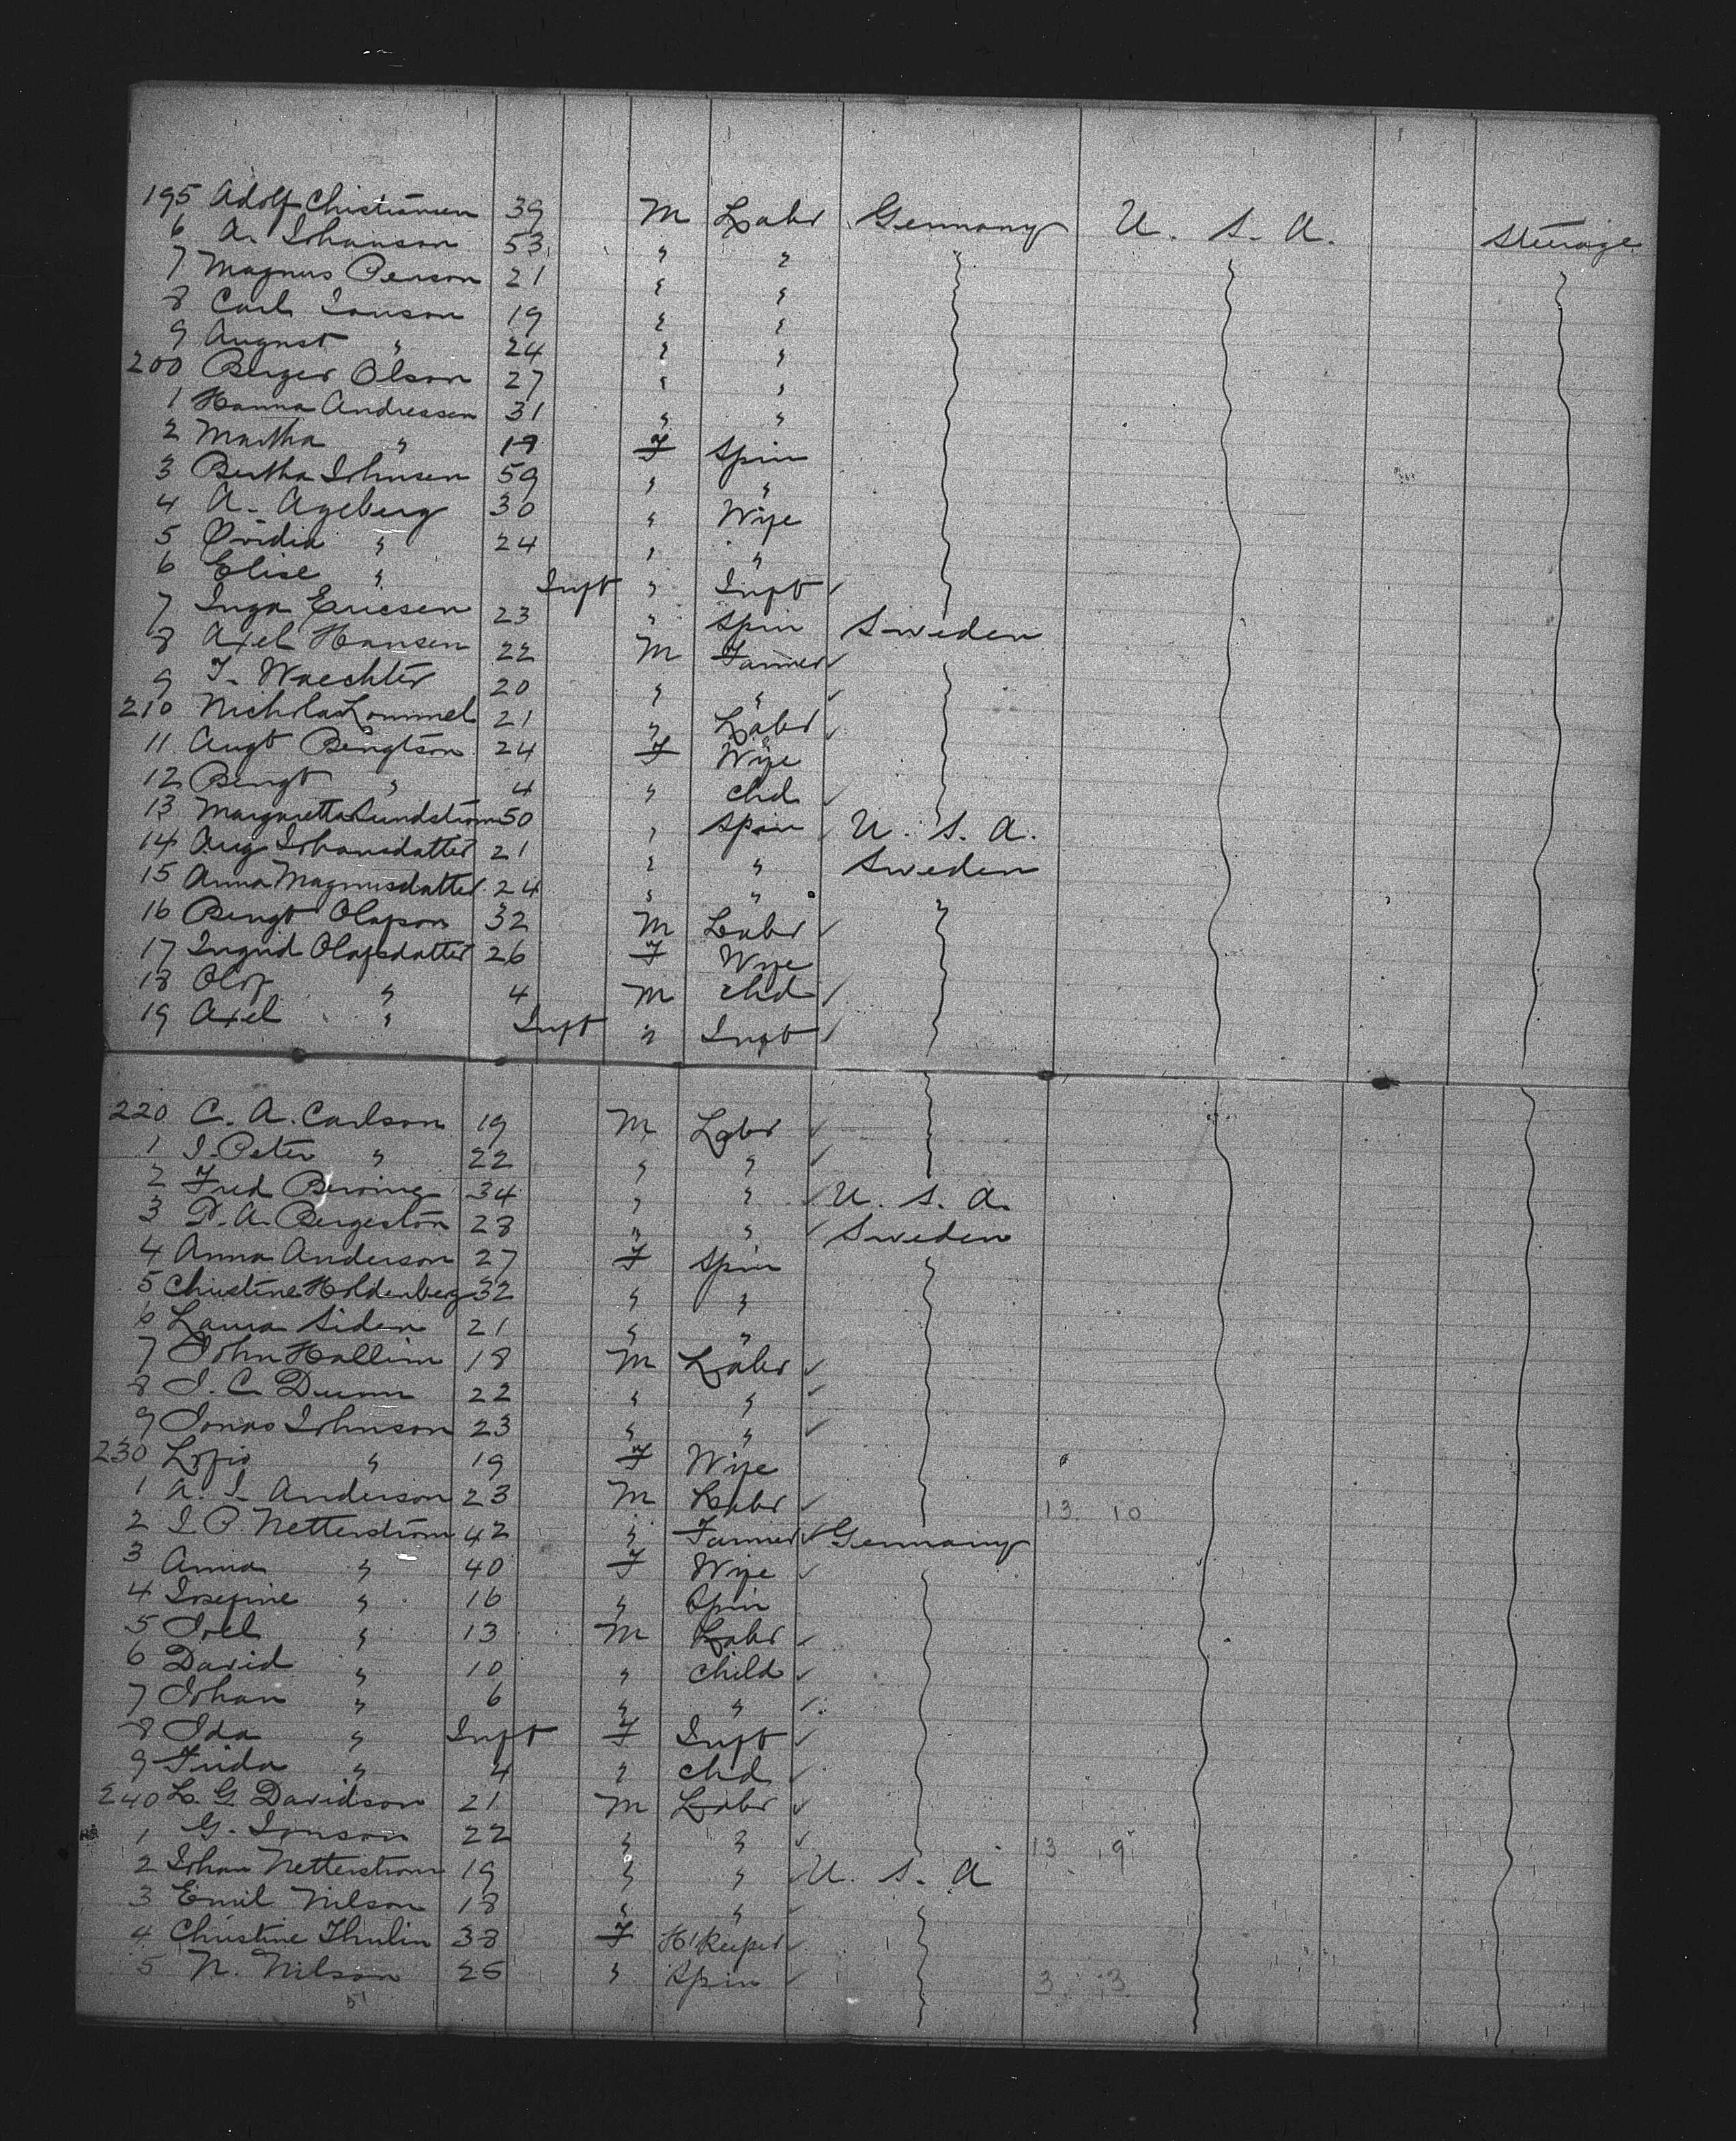 195 Adolf Christiansen 39 M Labr Germany U. S. A. Steerage
6 A. Johanson 53 " "
7 Magnus Person 21 " "
8 Carl Jonson 19 " "
9 August " 24 " "
200 Berger Olson 27 " "
1 Hanna Andressen 31 " "
2 Martha " 19 F Spin
3 Bertha Johnsen 59 " "
4 A. Ageberg 30 " Wife
5 Ovidia " 24 " "
6 Elise " Inft " Inft ✓
7 Inga Ericsen 23 " Spin Sweden
8 Axel Hansen 22 M Farmer ✓
9 F. Waechter 20 " " ✓
210 Nicholas Lommel 21 " Labr ✓
11 Augt Bengtson 24 F Wife
12 Bengt " 4 " Chd ✓
13 Margaretta Lundstrom 50 " Spin ✓ U. S. A.
14 Aug Johansdatter 21 " " Sweden
15 Anna Magnusdatter 24 " "
16 Bengt Olafson 32 M Labr ✓
17 Ingrid Olafsdatter 26 F Wife
18 Olof " 4 M Chd ✓
19 Axel " Inft " Inft ✓
220 C. A. Carlson 19 M Labr ✓
1 J. Peter " 22 " " ✓
2 Fred 34 " " ✓ U. S. A.
3 P. A. Bergeston 28 " " ✓ Sweden
4 Anna Anderson 27 F Spin
5 Christine Holdenberg 32 " "
6 Laura Siden 21 " "
7 John Hallim 18 M Labr ✓
8 J. C. Dumm 22 " " ✓
9 Jonas Johnson 23 " " ✓
230 " 19 F Wife
1 A. J. Anderson 23 M Labr ✓ 13 10
2 J. P. Netterstrom 42 " Farmer ✓ Germany
3 Anna " 40 F Wife ✓
4 Josefine " 16 " Spin
5 Joel " 13 M Labr ✓
6 David " 10 " Child ✓
7 Johan " 6 " " ✓
8 Ida " Inft F Inft ✓
9 Frida " 4 " Chd ✓
240 L. G. Davidson 21 M Labr ✓
1 G. Jonson 22 " " ✓ 13 9
2 Johan Netterstrom 19 " " ✓ U. S. A
3 Emil Nilson 18 " " ✓
4 Christine Thulin 38 F H'keeper ✓
5 N. Nilson 25 " Spin ✓ 3 3